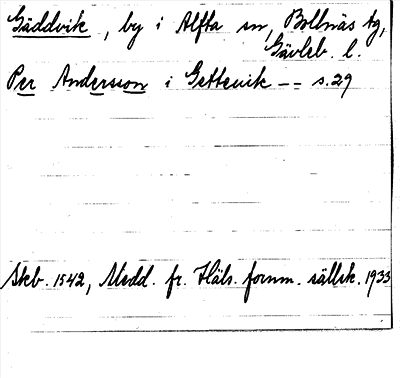 Gäddvik, by i Alfta sn, Bollnäs tg,
Gävleb. l.
Per Andersson i Gettenik -- s. 29
Skb. 1542, Medd. fr. Häls. fornm. sällsk. 1933